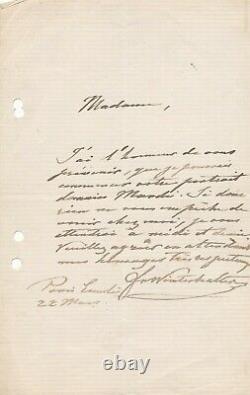 Madame,
J'ai l'honneur de vous
prévenir, que je pourrai
commencer votre portrait
demain Mardi. Si donc
rien ne vous empêche de
venir chez moi, je vous
attendrai à midi et demi.
Veuillez agréer en attendant
mes hommages très respectueux
Fr Winterhalter
Paris Lundi
22 Mars